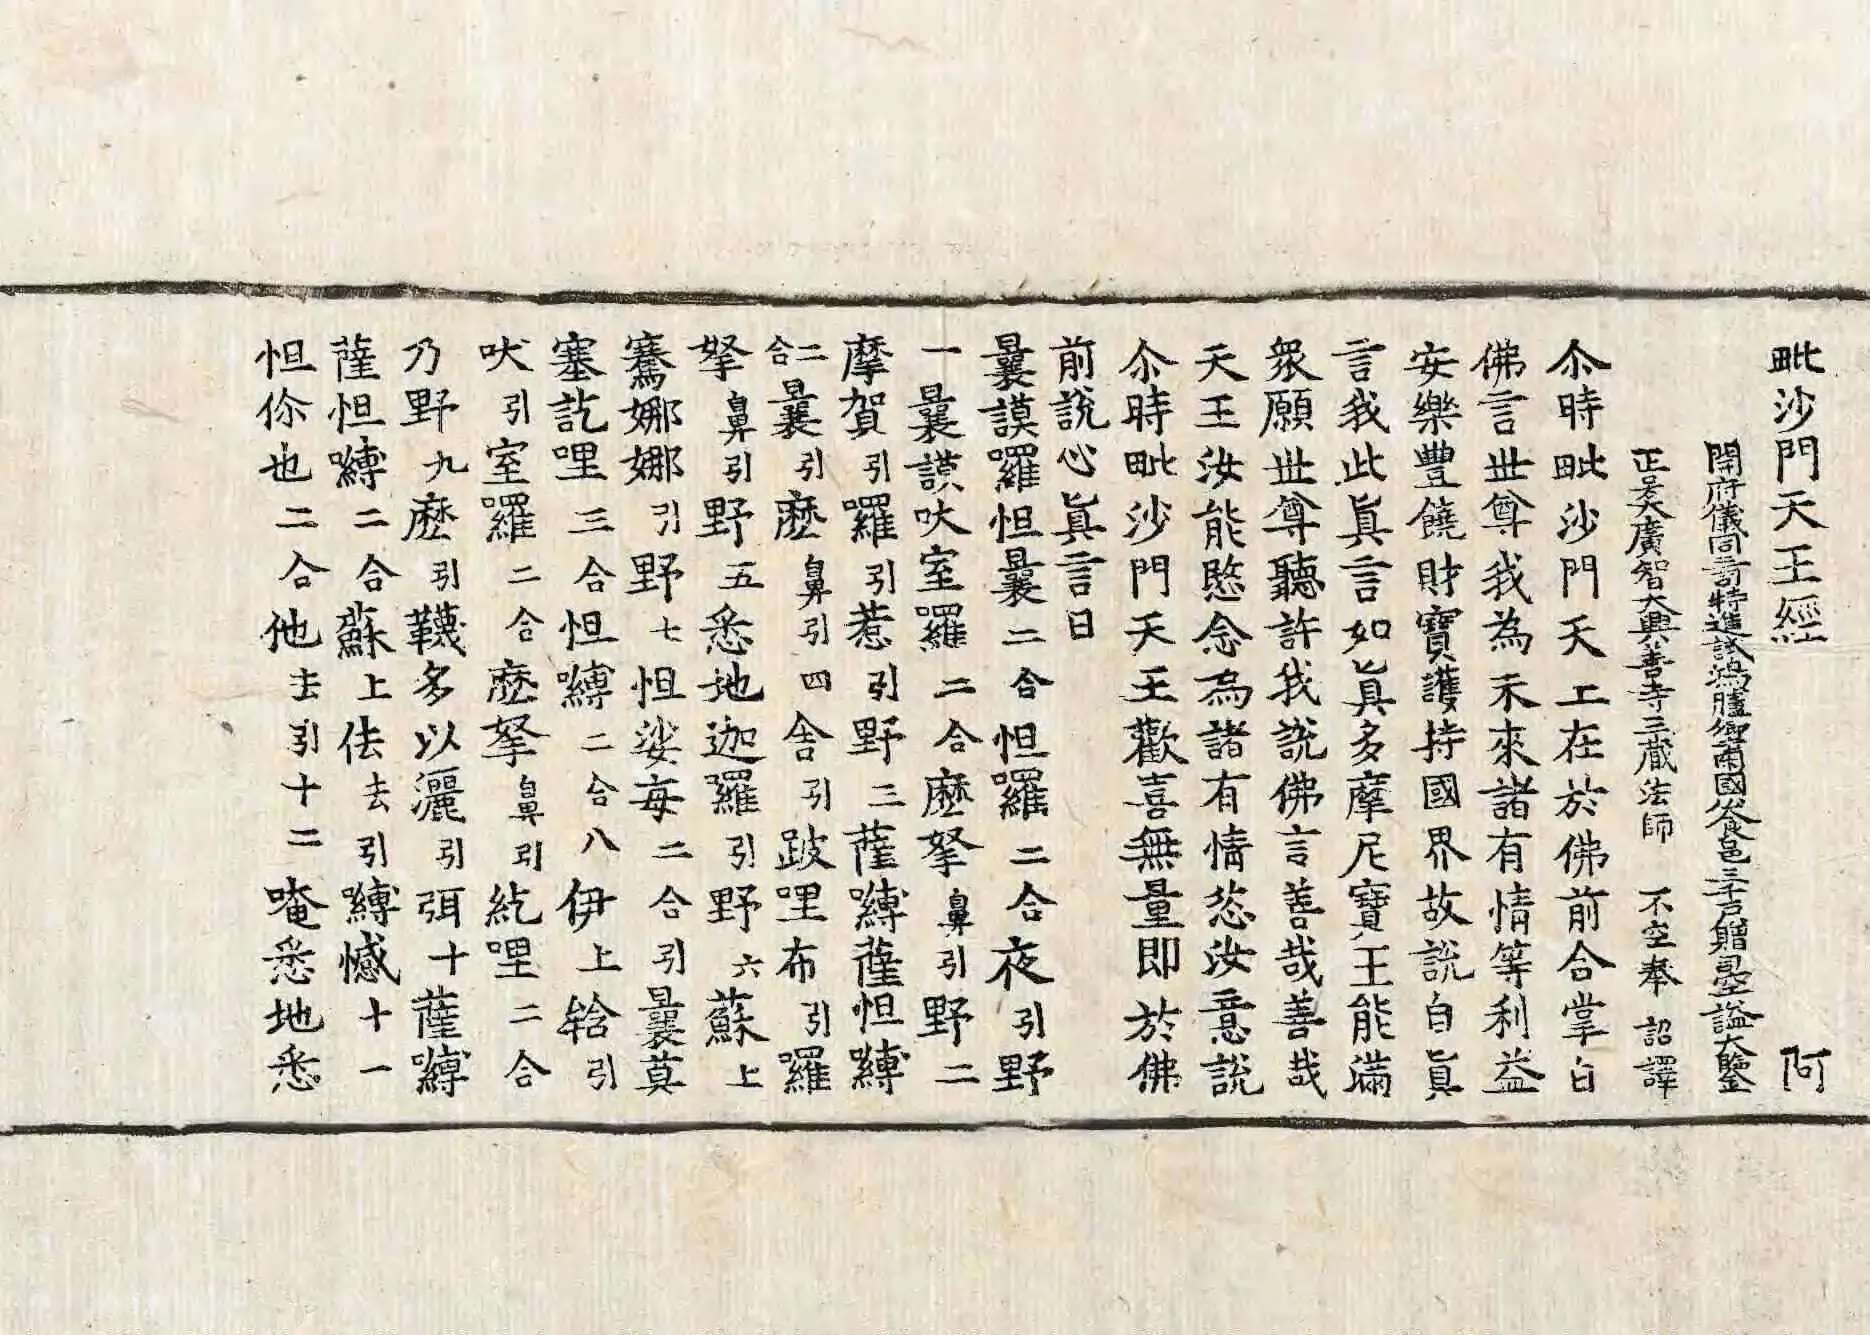 毗沙門天王經　阿
開府儀同三司特進試鴻臚卿肅國公食邑三千戶贈司空謚大鑒
正号大廣智大興善寺三藏法師　不空奉　詔譯
尒時毗沙門天王在於佛前合掌白
佛言世尊我為未來諸有情等利益
安樂豐饒財寶護持國界故說自眞
言我此眞言如眞多摩尼寶王能滿
眾願世尊聽許我說佛言善哉善哉
天王汝能愍念為諸有情恣汝意說
尒時毗沙門天王歡喜無量即於佛
前說心眞言曰
曩謨羅怛曩二合怛羅二合夜引野
一曩謨吠室囉二合麽拏鼻引野二
摩賀引囉引惹引野三薩嚩薩怛嚩
二合曩引麽鼻引四舍引跛哩布引囉
拏鼻引野五悉地迦囉引野六蘇上
騫娜娜引野七怛娑每二合引曩莫
塞訖哩三合怛嚩二合八伊上𤚥引
吠引室囉二合麽拏鼻引紇哩二合
乃野九麽引韈多以灑引弭十薩嚩
薩怛嚩二合蘇上佉去引嚩憾十一
怛你也二合他去引十二唵悉地悉